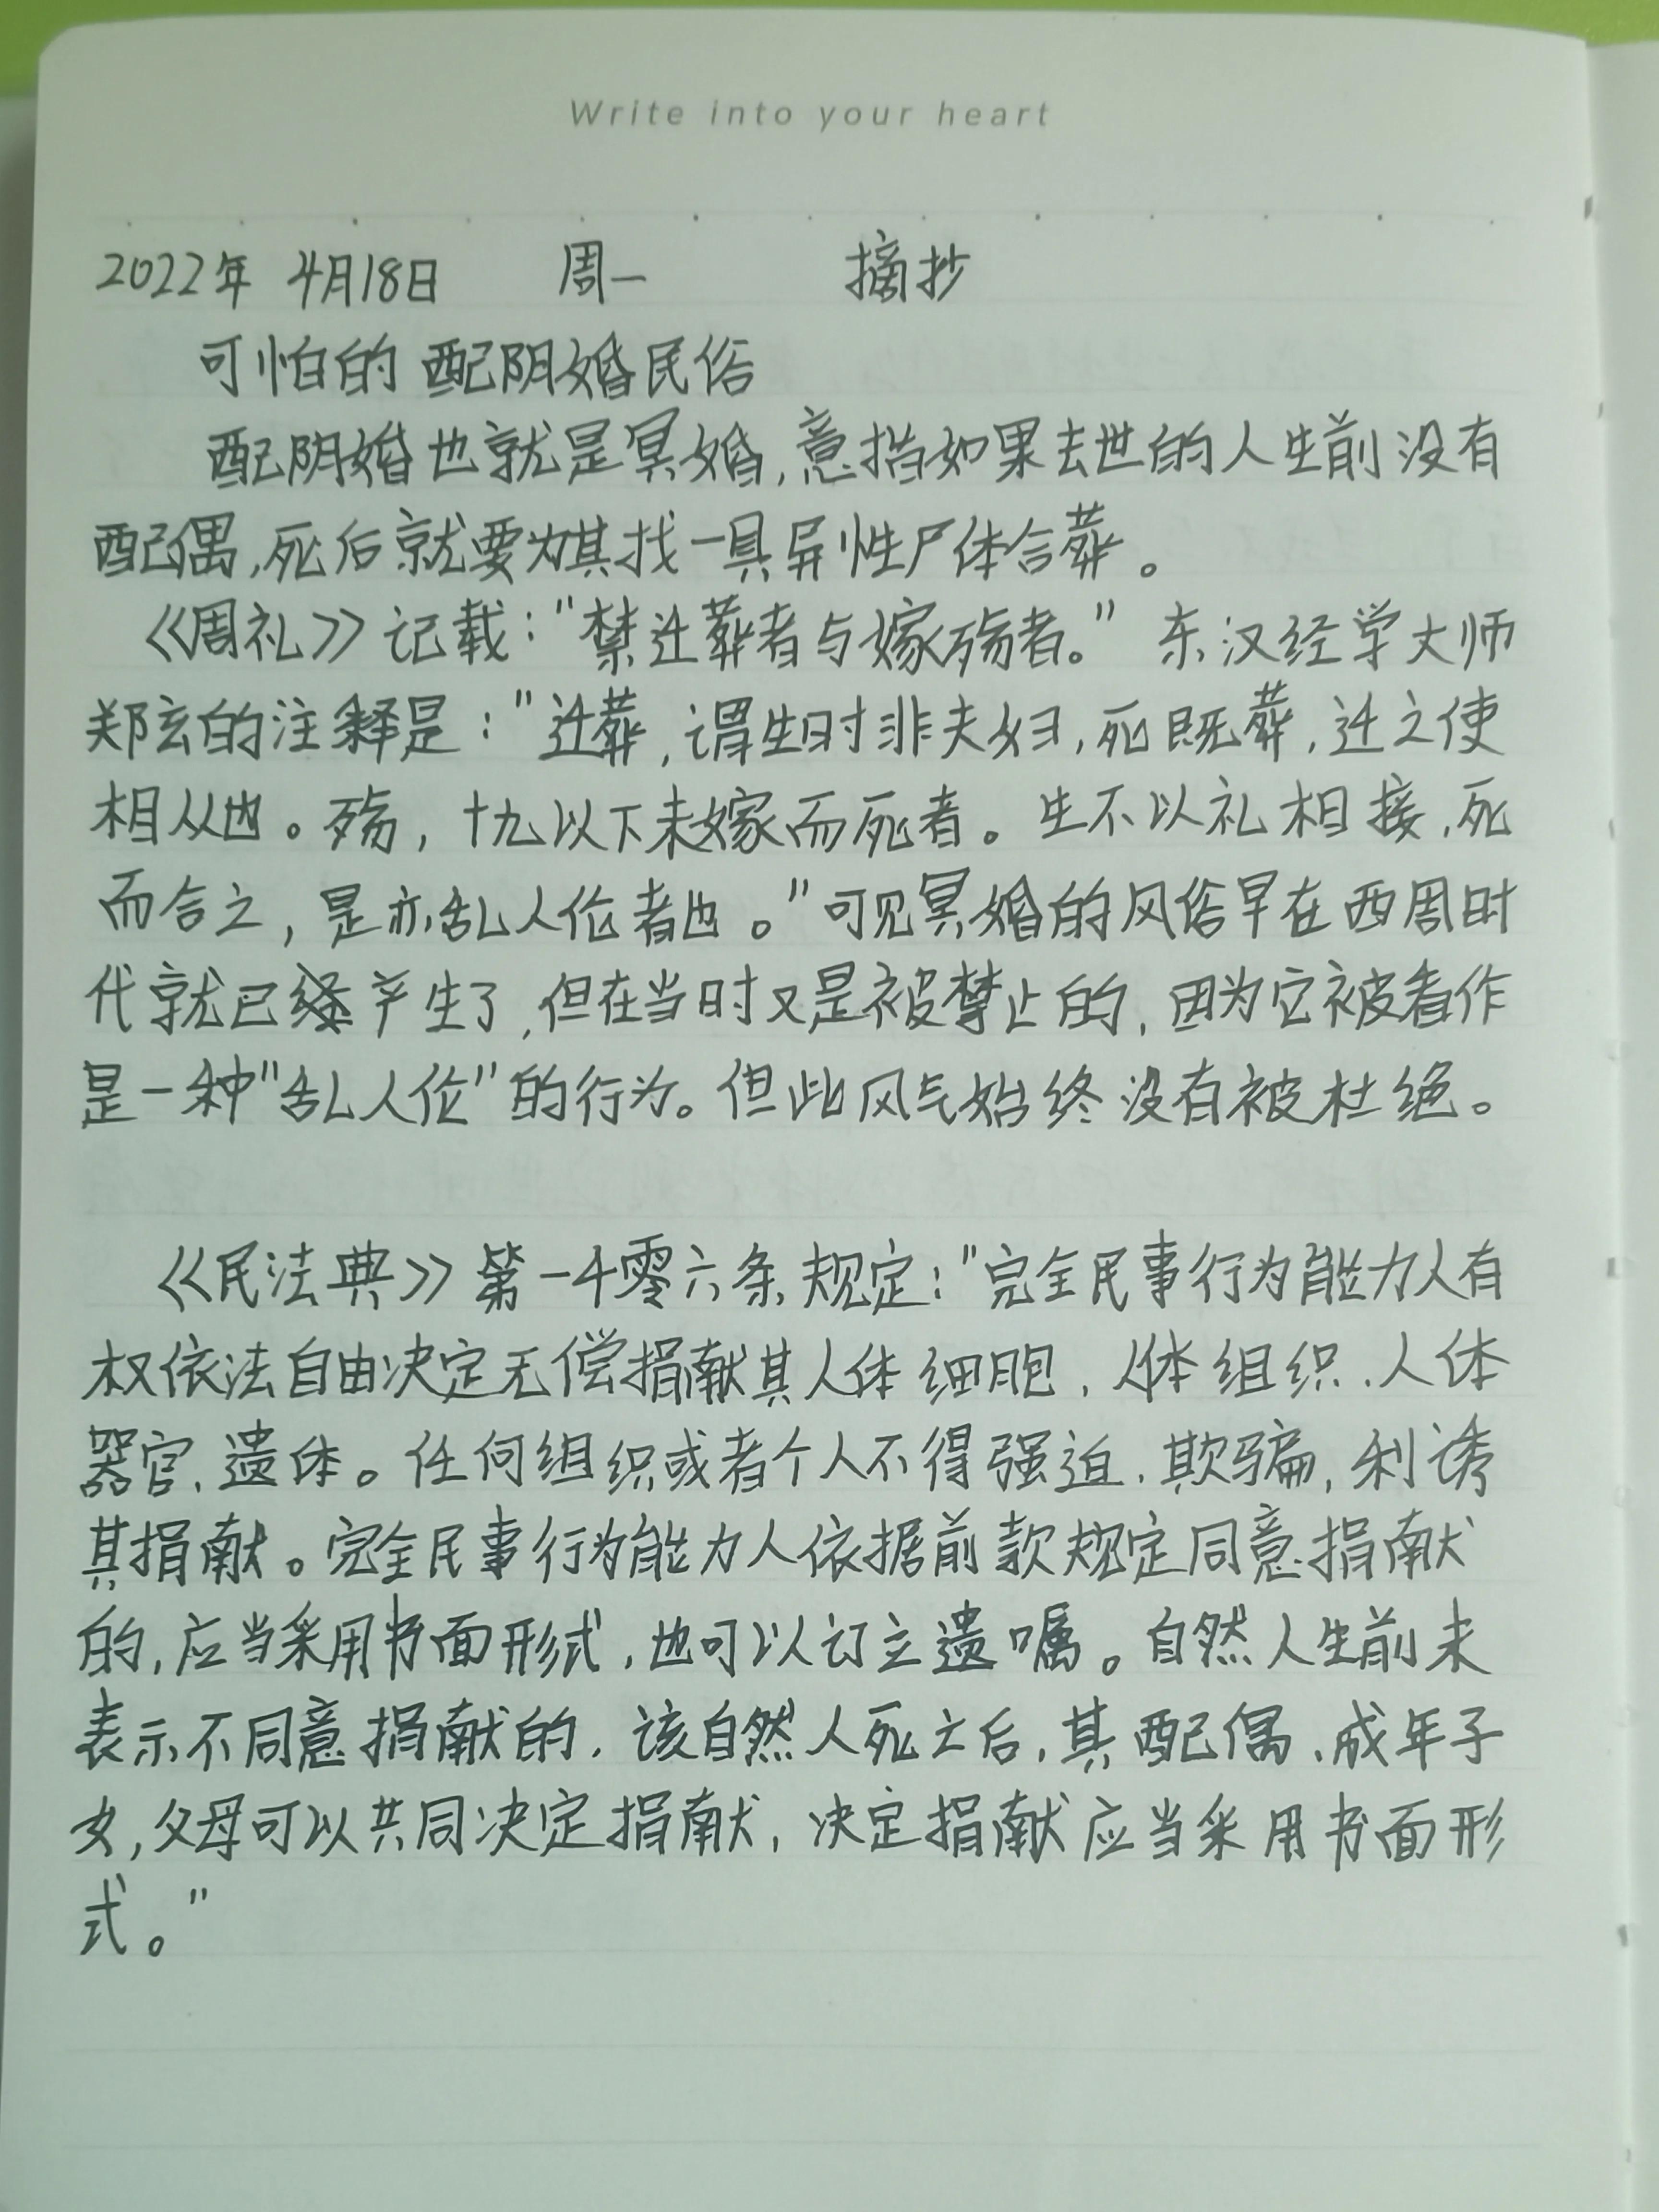 Write into your heart
2022年 4月18日 周一 摘抄
可怕的配阴婚民俗
配阴婚也就是冥婚,意指如果去世的人生前没有
配偶,死后就要为其找一具异性尸体合葬。
《周礼》记载:"禁迁葬者与嫁殇者。"东汉经学大师
郑玄的注释是:"迁葬,谓生时非夫妇,死既葬,迁之使
相从也。殇,十九以下未嫁而死者。生不以礼相接,死
而合之,是亦乱人伦者也。"可见冥婚的风俗早在西周时
代就已经产生了,但在当时又是被禁止的,因为它被看作
是一种"乱人伦"的行为。但此风气始终没有被杜绝。
《民法典》第一千零六条规定:"完全民事行为能力人有
权依法自由决定无偿捐献其人体细胞、人体组织、人体
器官、遗体。任何组织或者个人不得强迫、欺骗,利诱
其捐献。完全民事行为能力人依据前款规定同意捐献
的,应当采用书面形式,也可以订立遗嘱。自然人生前未
表示不同意捐献的,该自然人死亡后,其配偶、成年子
女,父母可以共同决定捐献,决定捐献应当采用书面形
式。"